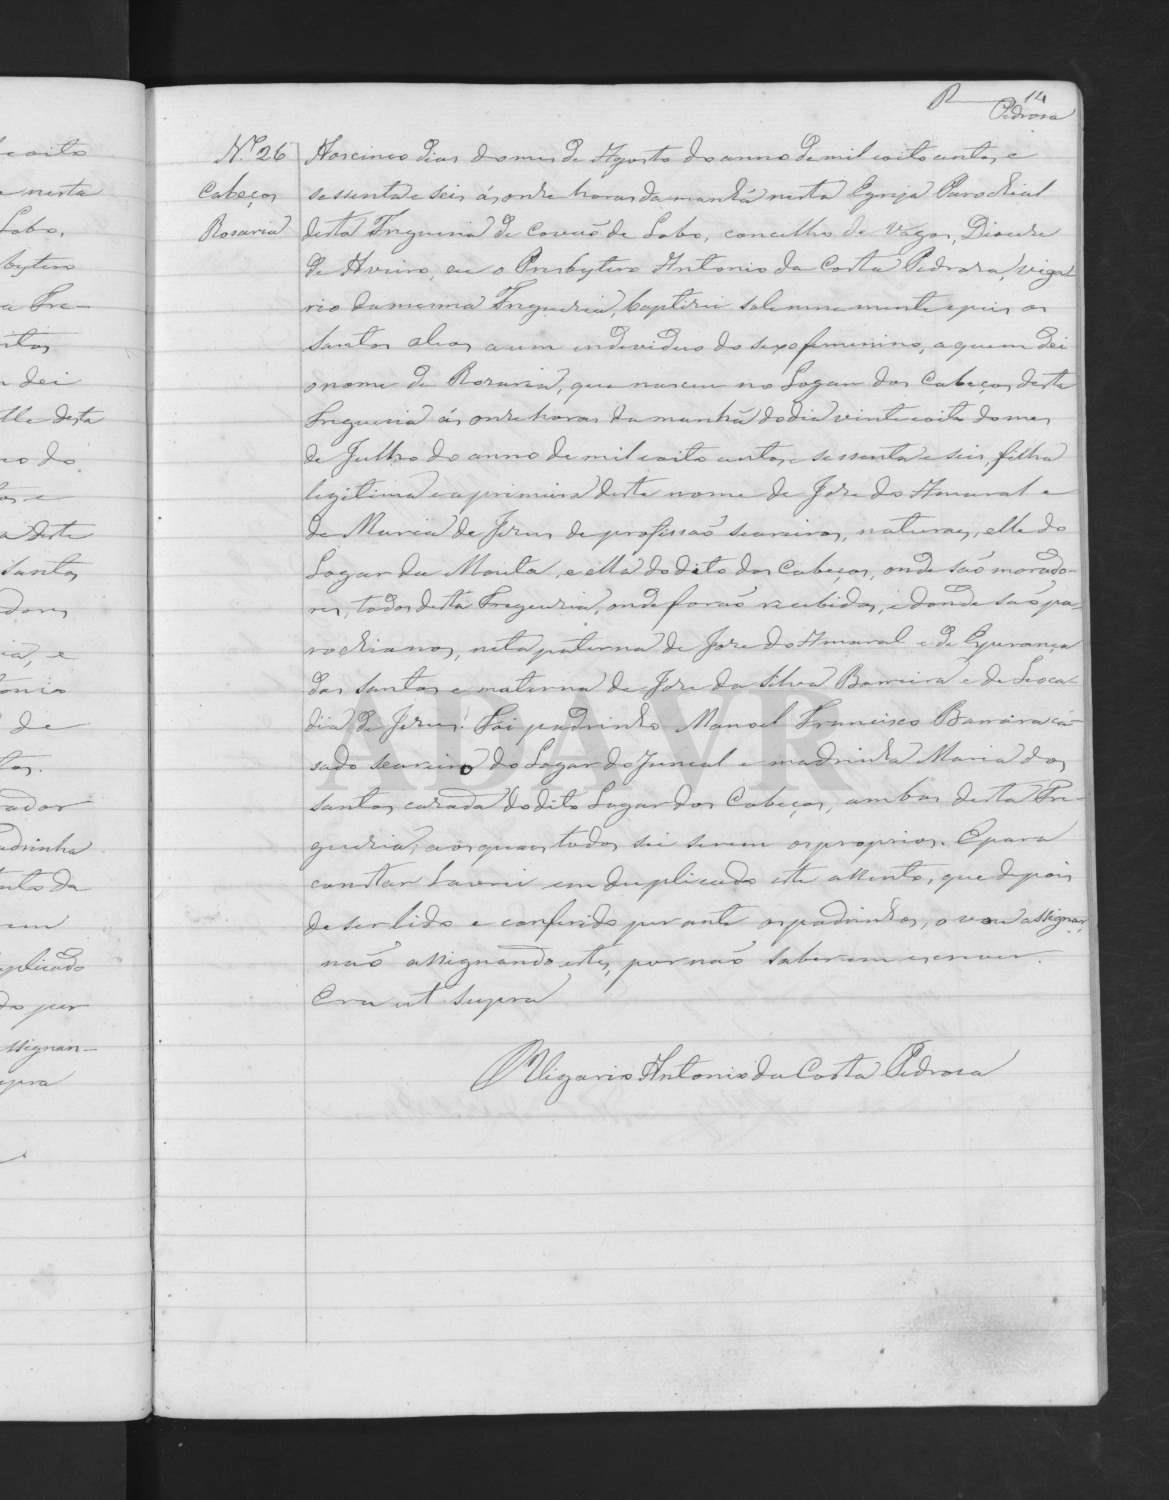 R 14
Pedrosa
N.º 26
Cabeços
Rosaria
Aos cinco dias do mes de Agosto do anno de mil oito centos e
sessenta e seis ás onze horas da manhã nesta Egreja Parochial
desta Freguesia de Covaõ de Lobo, concelho de Vagos, Diocese
de Aveiro, eu o Presbytero Antonio da Costa Pedrosa, viga-
rio da mesma Freguezia, baptizei solemnemente e puz os
santos oleos a um individuo do sexo femenino, a quem dei
o nome de Rosaria, que nasceu no Logar dos Cabeços desta
Freguesia ás onze horas da manhã do dia vinte e oito do mes
de Julho do anno de mil oito centos e sessenta e seis, filha
legitima e a primeira deste nome de Joze do Amaral e
de Maria de Jezus de profissaõ seareiros, naturaes, elle do
Logar da Mouta, e ella do dito dos Cabeços, onde saõ morado-
res, todos desta Freguezia, onde foraõ recebidos, e donde saõ pa-
rochianos, neta paterna de Joze do Amaral e de Esperança
dos Santos e materna de Joze da Silva Barreira e de Leoca-
dia de Jezus. Foi padrinho Manoel Francisco Barreira ca-
sado seareiro do Logar do Juncal e madrinha Maria dos
Santos cazada do dito Logar dos Cabeços, ambos desta Fre-
guezia, aos quaes todos sei serem os proprios. E para
constar lavrei em duplicado este assento, que depois
de ser lido e conferido perante os padrinhos, o vou assignar,
naõ assignando estes, por naõ saberem escrever.
Era ut supra
O Vigario Antonio da Costa Pedrosa
ADAVR